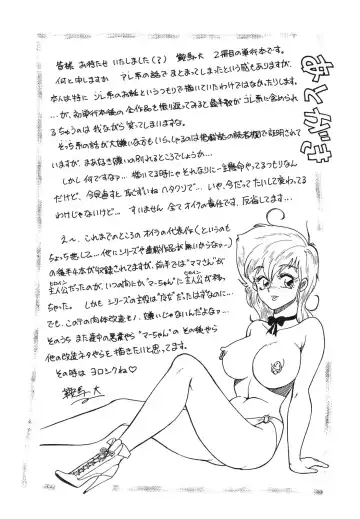 あとがき
皆様 お待たせいたしました(?) 鞍馬大 2冊目の単行本です。
何と申しますか アレ系の話でまとまってしまったという感もありますが、
本人は特にソレ系のお話というつもりで描いていたわけではなかったりします。
…が、初単行本後の全作品を振り返ってみると過半数がコレ系に含められ
るちゅうのは我ながら笑ってしまいますな。
そっち系の話が大嫌いな方もいらっしゃるのは掲載誌の読者欄で証明されて
いますが、まあ好き嫌いの別れるところでしょうか…。
しかし何ですな〜。描いてる時にゃそれなりに一生懸命やってるつもりなん
だけど、今見直すと恥ずいねヘタクソで…。いや、今だってたいして変わってる
わけじゃないけど…。すいません 全てオイラの責任です、反省してます…。
え〜、これまでのところのオイラの代表作(というのも
ちょっと悲しくて…他にシリーズや連載作品が無いからな〜)
の後半4本が収録されてますが、前半では“ママさん”が
主人公だったのが、いつの間にか“マーちゃん”に主人公が移っ
ちゃった。しかもシリーズの主役は
でも、この手の肉体改造モノ、嫌いじゃないんだよなァ…。
そのうち また
他の改造ネタやらを描きたいと思ってます。
その時は ヨロシクね♡
鞍馬大